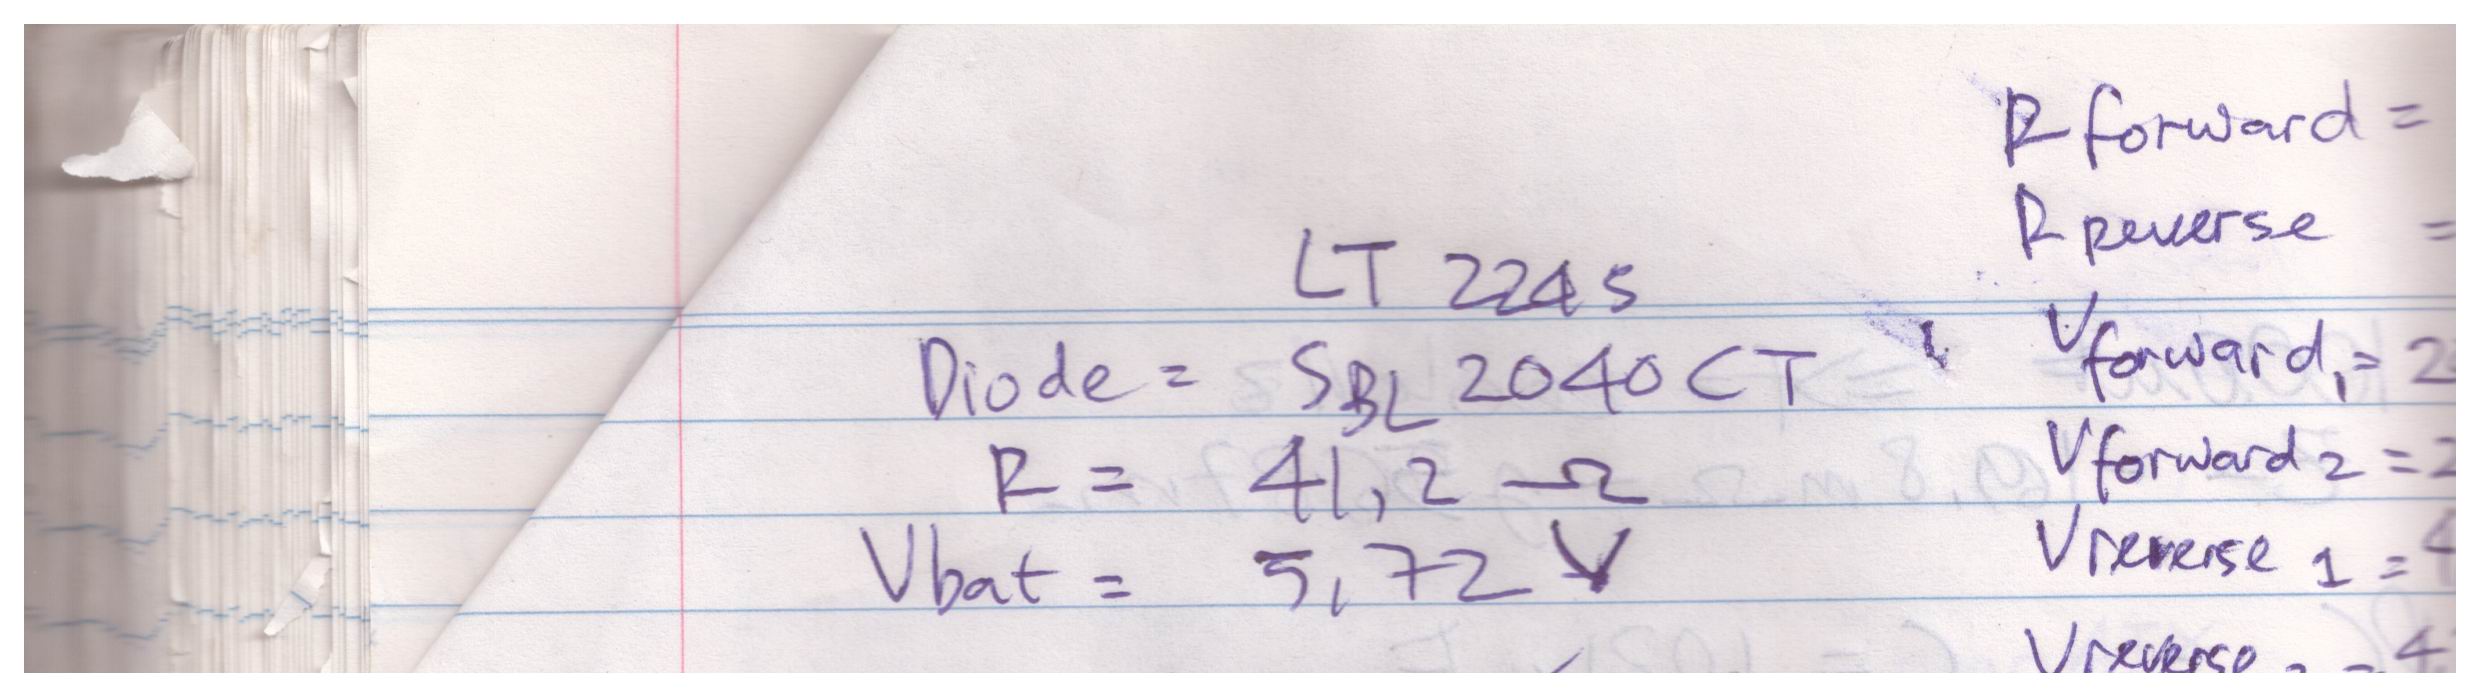 LT 2245
Diode = SBL 2040 CT
R = 41,2 Ω
Vbat = 5,72 V
R forward =
R reverse =
V forward 1 = 2
V forward 2 = 2
V reverse 1 = 4
V reverse 2 = 4